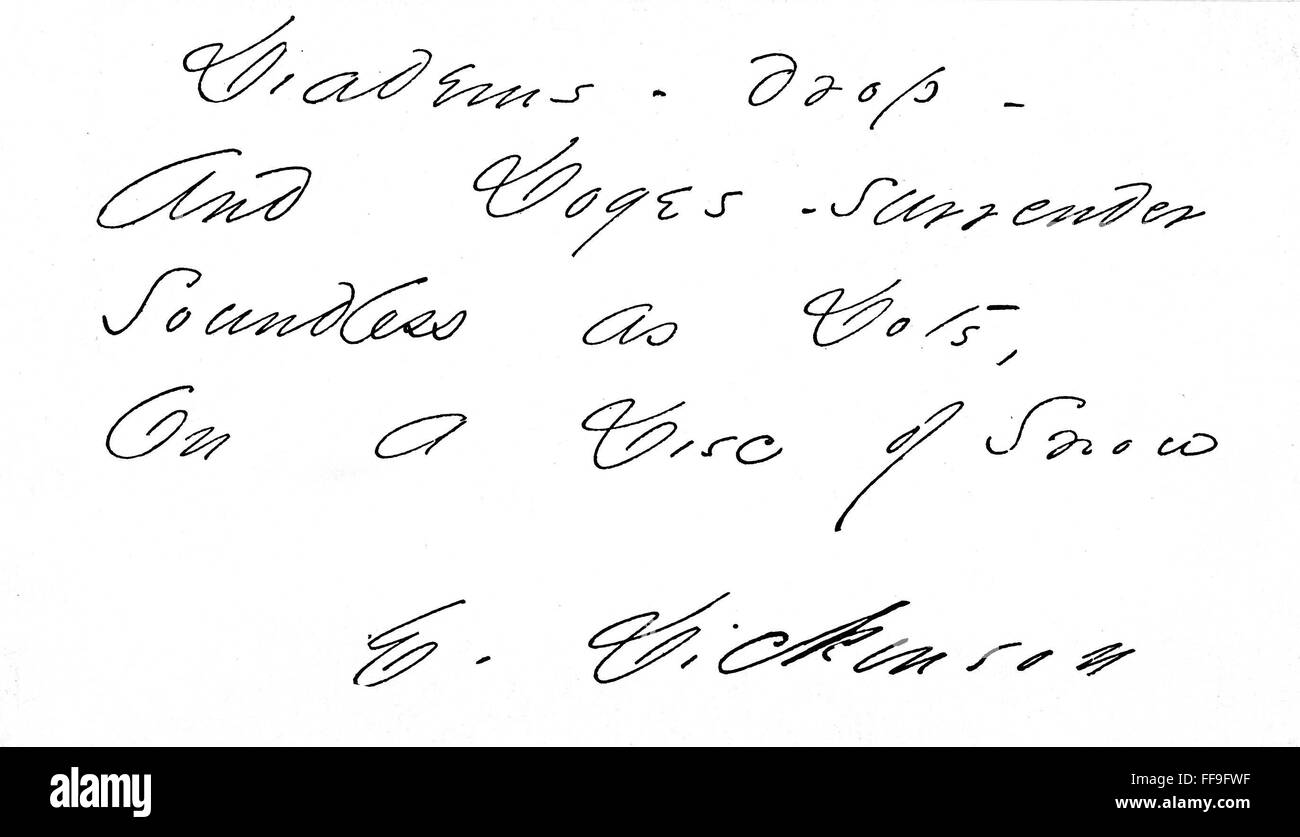 Diadems - drop -
And Doges - surrender
Soundless as Dots,
On a Disc of Snow
E. Dickinson
alamy
Image ID: FF9FWF
www.alamy.com